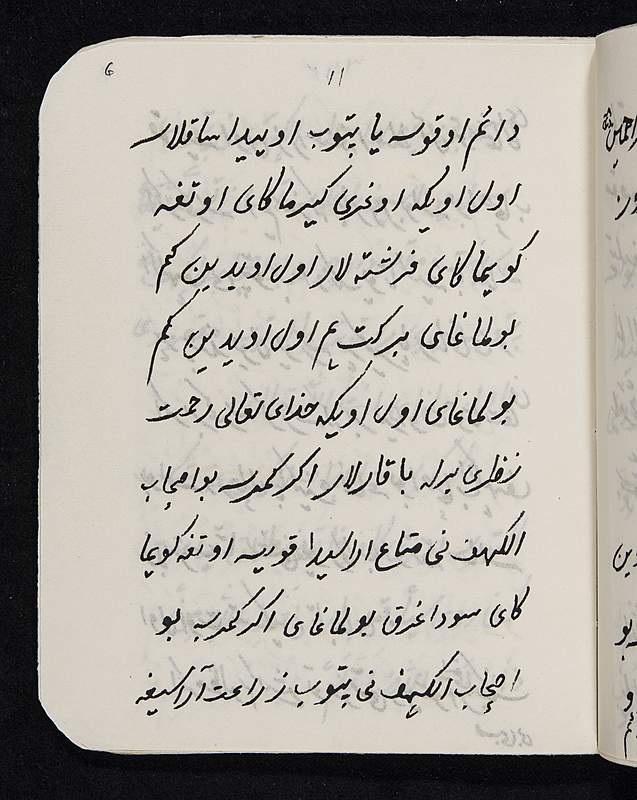 6
11
دائم اوقوسه یا پتوب اوییدا ساقلاسه
اول اویکه اوغری کیرماکای اوتغه
کویماکای فرشته لار اول اویدین کم
بولماغای برکت هم اول اویدین کم
بولماغای اول اویکه خدای تعالی رحمت
نظری برله باقارلار اکر کمدسه بو اصحاب
الکهف نی متاع اراسیدا قویسه اوتغه کویما
کای سودا غرق بولماغای اکر کمدسه بو
اصحاب الکهف نی پتوب زراعت آراسیغه